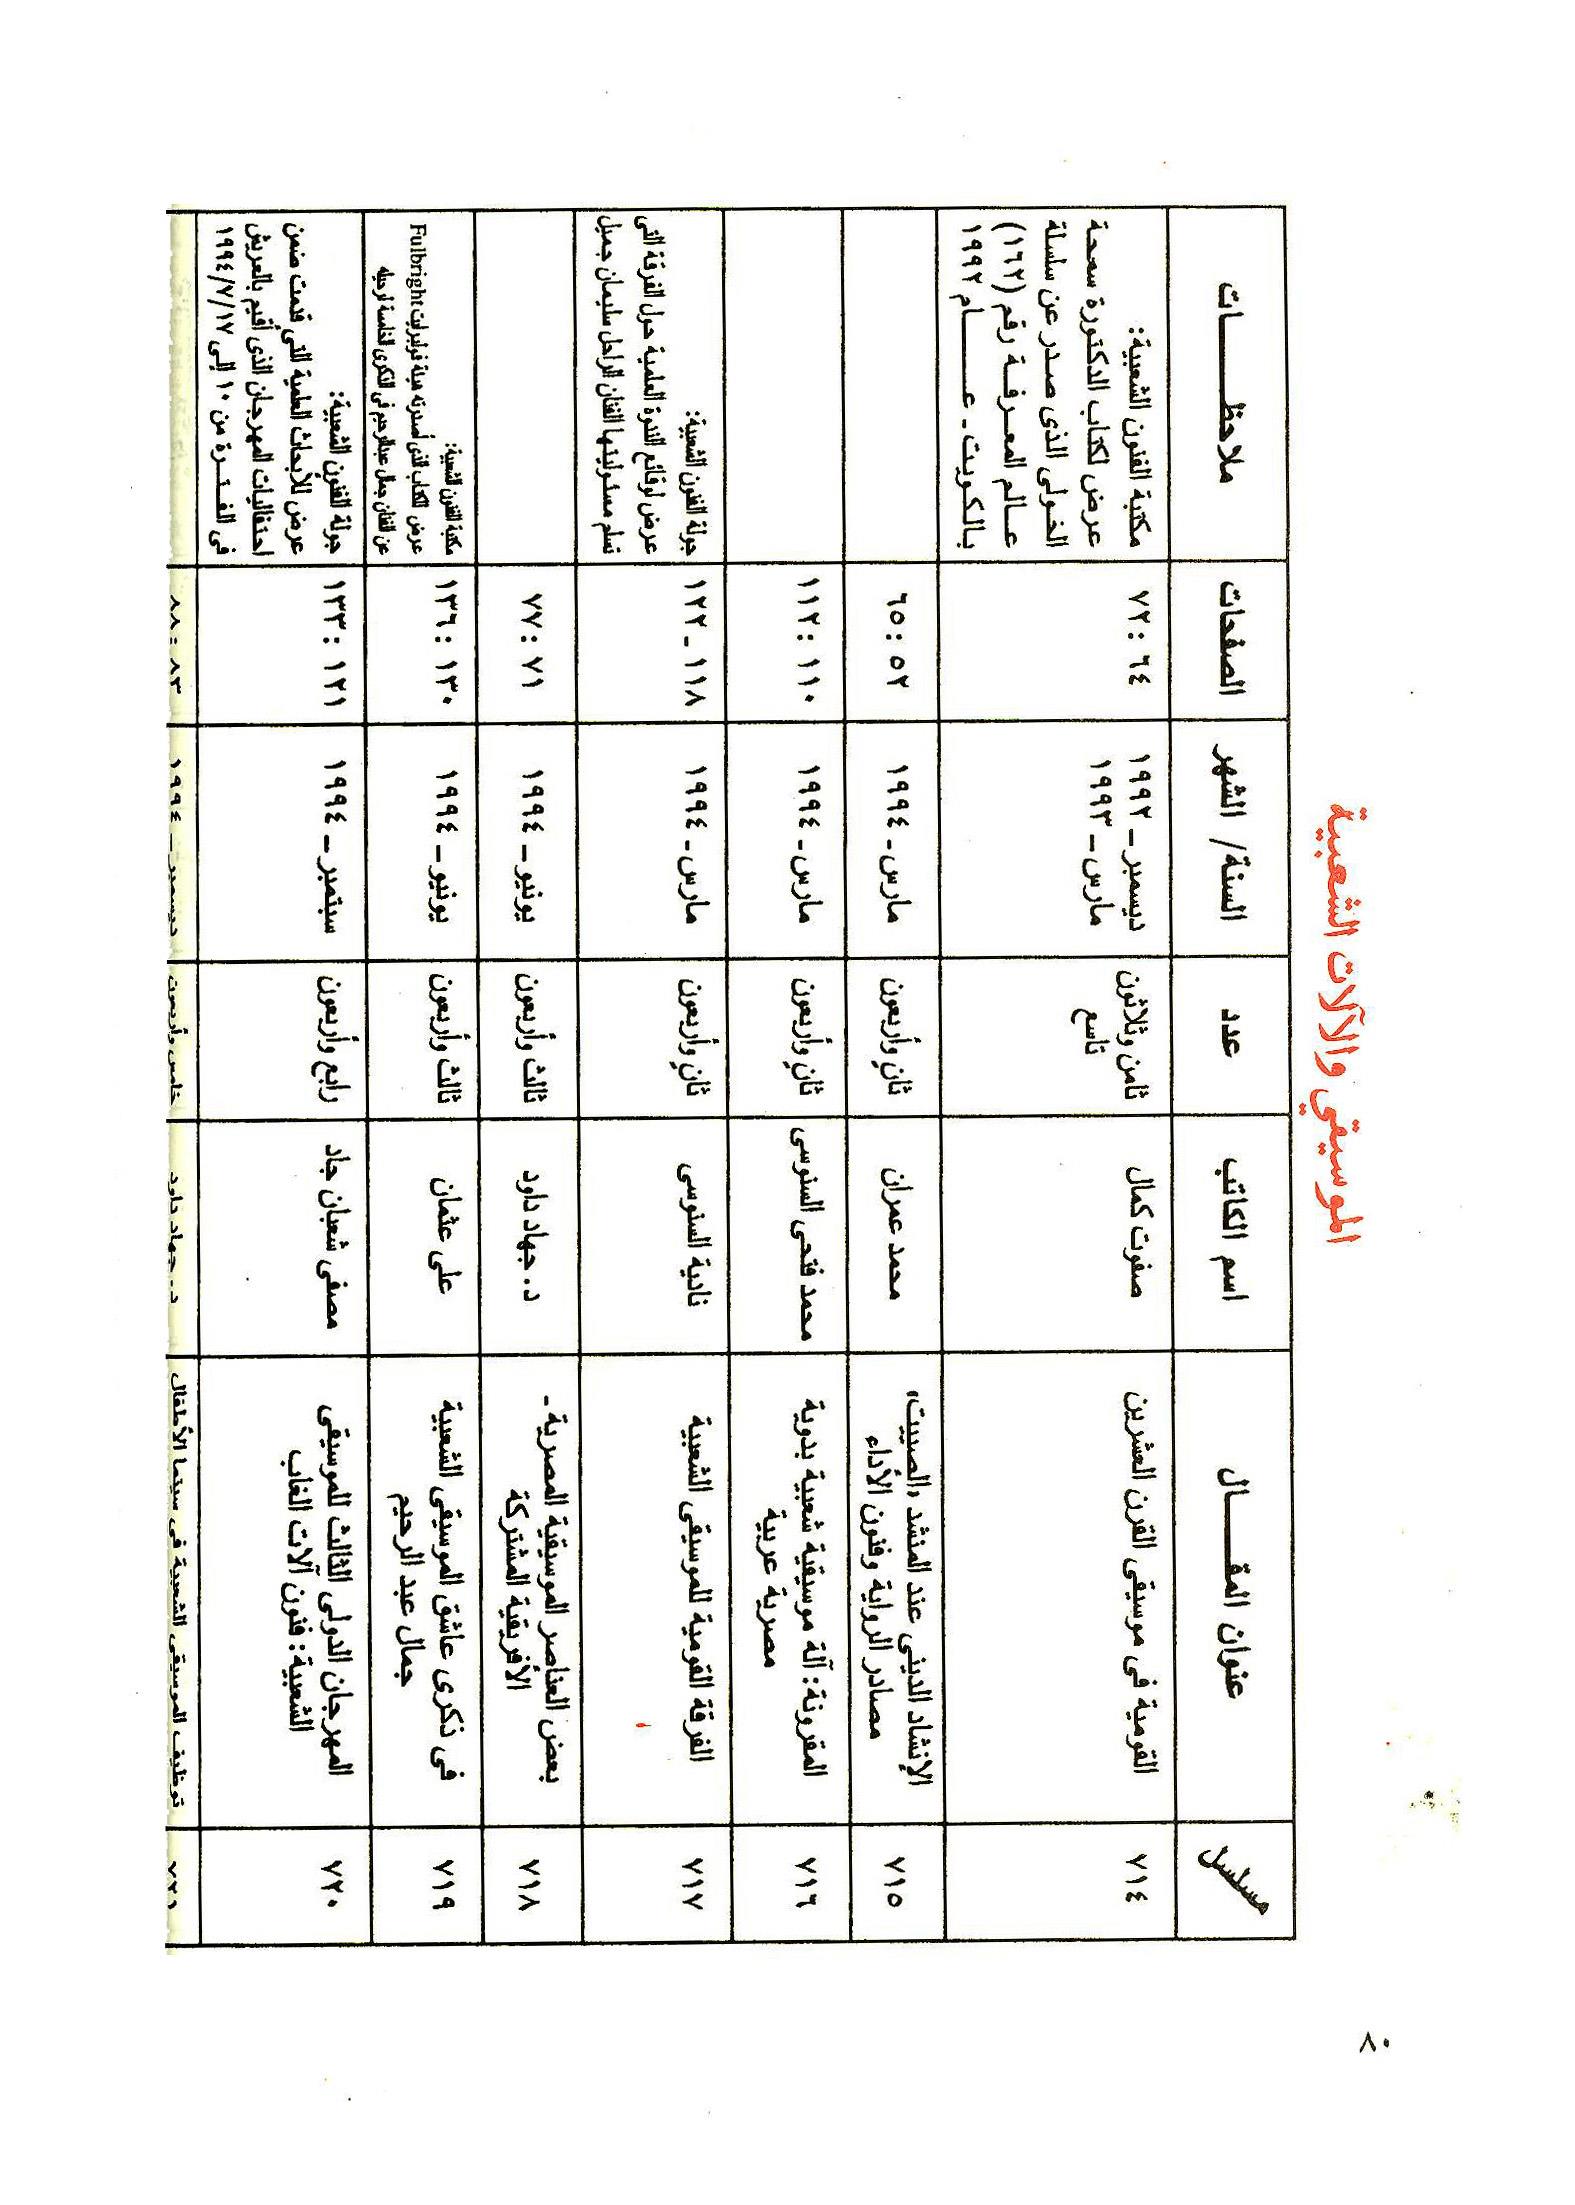 الموسيقي والآلات الشعبية
مسلسل
عنوان المقـــال
اسم الكاتب
عدد
السنة/ الشهر
الصفحات
ملاحظـــات
٧١٤
القومية فى موسيقى القرن العشرين
صفوت كمال
ثامن وثلاثون
تاسع
ديسمبر ـ ١٩٩٢
مارس ـ ١٩٩٣
٦٤ : ٧٢
مكتبة الفنون الشعبية:
عرض لكتاب الدكتورة سمحة
الخولى الذى صدر عن سلسلة
عالم المعرفة رقم (١٦٢)
بالكويت ـ عام ١٩٩٢
٧١٥
الإنشاد الدينى عند المنشد «الصييت»
مصادر الرواية وفنون الأداء
محمد عمران
ثانٍ وأربعون
مارس ـ ١٩٩٤
٥٢ : ٦٥
٧١٦
المقرونة: آلة موسيقية شعبية بدوية
مصرية عربية
محمد فتحى السنوسى
ثانٍ وأربعون
مارس ـ ١٩٩٤
١١٠ : ١١٢
٧١٧
الفرقة القومية للموسيقى الشعبية
نادية السنوسى
ثانٍ وأربعون
مارس ـ ١٩٩٤
١١٨ ـ ١٢٢
جولة الفنون الشعبية:
عرض لوقائع الندوة العلمية حول الفرقة التى
تسلم مسئوليتها الفنان الراحل سليمان جميل
٧١٨
بعض العناصر الموسيقية المصرية ـ
الأفريقية المشتركة
د. جهاد داود
ثالث وأربعون
يونيو ـ ١٩٩٤
٧١ : ٧٧
٧١٩
فى ذكرى عاشق الموسيقى الشعبية
جمال عبد الرحيم
على عثمان
ثالث وأربعون
يونيو ـ ١٩٩٤
١٣٠ : ١٣٦
مكتبة الفنون الشعبية:
عرض للكتاب الذى أصدرته هيئة فولبرايت Fulbright
عن الفنان جمال عبدالرحيم فى الذكرى الخامسة لرحيله
٧٢٠
المهرجان الدولى الثالث للموسيقى
الشعبية: فنون آلات الغاب
مصفى شعبان جاد
رابع وأربعون
سبتمبر ـ ١٩٩٤
١٢١ : ١٣٣
جولة الفنون الشعبية:
عرض للأبحاث العلمية التى قدمت ضمن
احتفاليات المهرجان الذى أقيم بالعريش
فى الفترة من ١٠ إلى ١٩٩٤/٧/١٧
٧٢١
توظيف الموسيقى الشعبية فى سينما الأطفال
د. جهاد داود
خامس وأربعون
ديسمبر ـ ١٩٩٤
٨٣ : ٨٨
٨٠